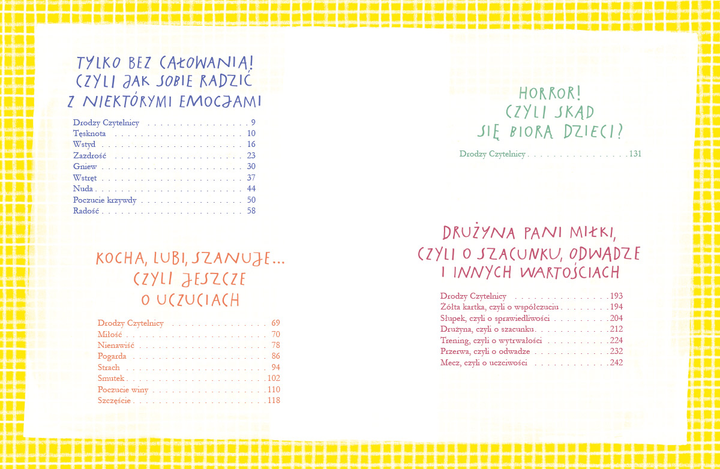 TYLKO BEZ CAŁOWANIA!
CZYLI JAK SOBIE RADZIĆ
Z NIEKTÓRYMI EMOCJAMI
Drodzy Czytelnicy . . . . . . . . . . . . . . 9
Tęsknota . . . . . . . . . . . . . . 10
Wstyd . . . . . . . . . . . . . . 16
Zazdrość . . . . . . . . . . . . . . 23
Gniew . . . . . . . . . . . . . . 30
Wstręt . . . . . . . . . . . . . . 37
Nuda . . . . . . . . . . . . . . 44
Poczucie krzywdy . . . . . . . . . . . . . . 50
Radość . . . . . . . . . . . . . . 58
KOCHA, LUBI, SZANUJE...
CZYLI JESZCZE
O UCZUCIACH
Drodzy Czytelnicy . . . . . . . . . . . . . . 69
Miłość . . . . . . . . . . . . . . 70
Nienawiść . . . . . . . . . . . . . . 78
Pogarda . . . . . . . . . . . . . . 86
Strach . . . . . . . . . . . . . . 94
Smutek . . . . . . . . . . . . . . 102
Poczucie winy . . . . . . . . . . . . . . 110
Szczęście . . . . . . . . . . . . . . 118
HORROR!
CZYLI SKĄD
SIĘ BIORĄ DZIECI?
Drodzy Czytelnicy . . . . . . . . . . . . . . 131
DRUŻYNA PANI MIŁKI,
CZYLI O SZACUNKU, ODWADZE
I INNYCH WARTOŚCIACH
Drodzy Czytelnicy . . . . . . . . . . . . . . 193
Żółta kartka, czyli o współczuciu . . . . . . . . 194
Słupek, czyli o sprawiedliwości . . . . . . . . 204
Drużyna, czyli o szacunku . . . . . . . . . . 212
Trening, czyli o wytrwałości . . . . . . . . . . 224
Przerwa, czyli o odwadze . . . . . . . . . . 232
Mecz, czyli o uczciwości . . . . . . . . . . 242